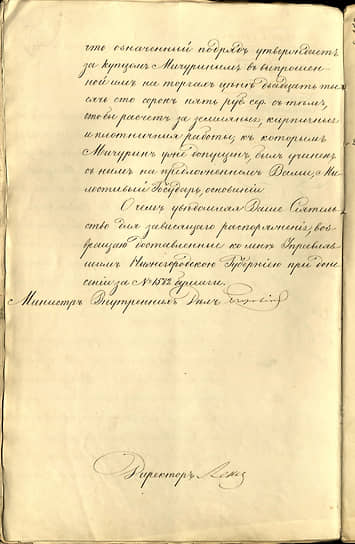 что означенный подрядъ утверждаетъ
за купцомъ Мичуринымъ въ выпрошен-
ной имъ на торгахъ цѣнѣ двадцать ты-
сячъ сто сорокъ пять руб. сер. съ тѣмъ,
чтобы расчетъ за земляныя, кирпичныя
и плотничныя работы, къ которымъ
Мичуринъ уже допущенъ, былъ учиненъ
съ нимъ на предложенномъ Вами, Ми-
лостивый Государь, основаніи.
О чемъ увѣдомляя Ваше Сіятель-
ство для зависящаго распоряженія, воз-
вращаю доставленныя ко мнѣ Управляв-
шимъ Нижегородскою Губерніею при доне-
сеніи за № 1582 бумаги.
Министръ Внутреннихъ Дѣлъ
Директоръ